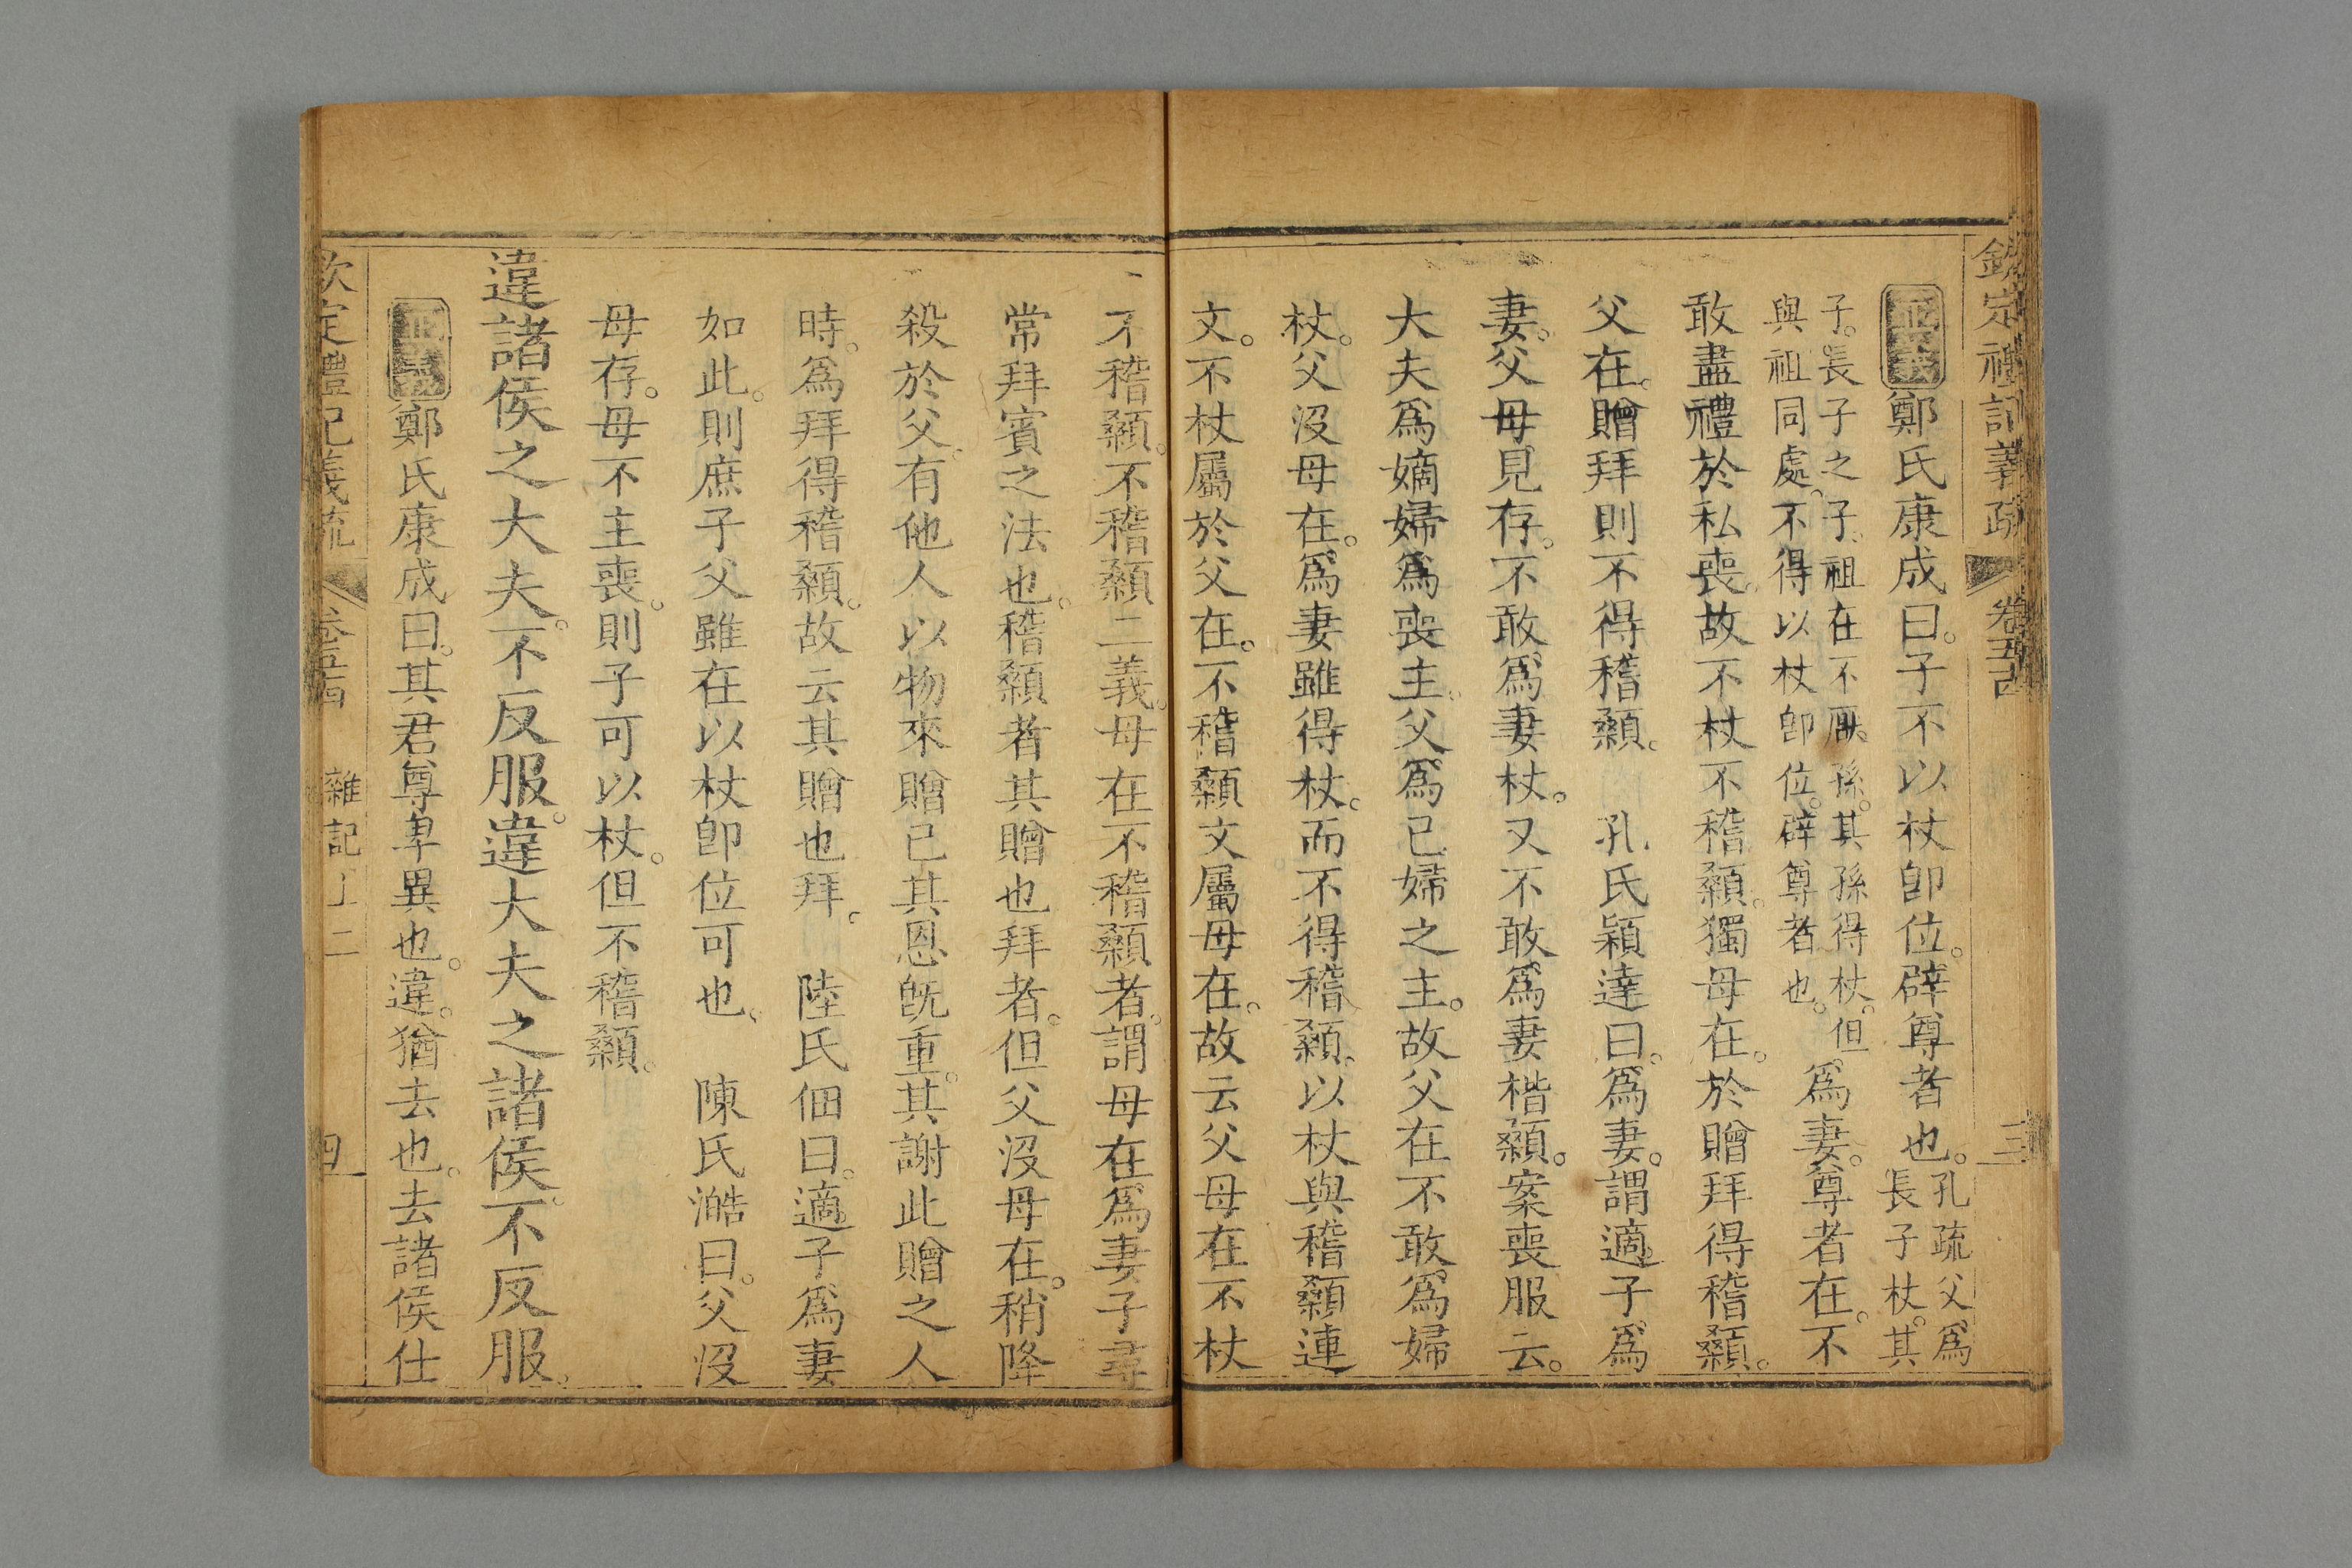 欽定禮記義疏 卷五十四 三
正義鄭氏康成曰。子不以杖卽位。辟尊者也。孔疏父爲長子杖。其
子。長子之子。祖在不厭孫。其孫得杖。但與祖同處。不得以杖卽位。辟尊者也。爲妻。尊者在。不
敢盡禮於私喪。故不杖不稽顙。獨母在。於贈拜得稽顙。
父在。贈拜則不得稽顙。 孔氏穎達曰。爲妻。謂適子爲
妻。父母見存。不敢爲妻杖。又不敢爲妻稽顙。案喪服云。
大夫爲嫡婦爲喪主。父爲已婦之主。故父在不敢爲婦
杖。父沒母在。爲妻雖得杖。而不得稽顙。以杖與稽顙連
文。不杖屬於父在。不稽顙文屬母在。故云父母在不杖
不稽顙。不稽顙二義。母在不稽顙者。謂母在爲妻子尋
常拜賓之法也。稽顙者其贈也拜者。但父沒母在。稍降
殺於父。有他人以物來贈已其恩旣重。其謝此贈之人
時。爲拜得稽顙。故云其贈也拜。 陸氏佃曰。適子爲妻
如此。則庶子父雖在以杖卽位可也。 陳氏澔曰。父沒
母存。母不主喪。則子可以杖。但不稽顙。
違諸侯之大夫。不反服。違大夫之諸侯。不反服。
正義鄭氏康成曰。其君尊卑異也。違。猶去也。去諸侯仕
欽定禮記義疏 卷五十四 雜記上二 四